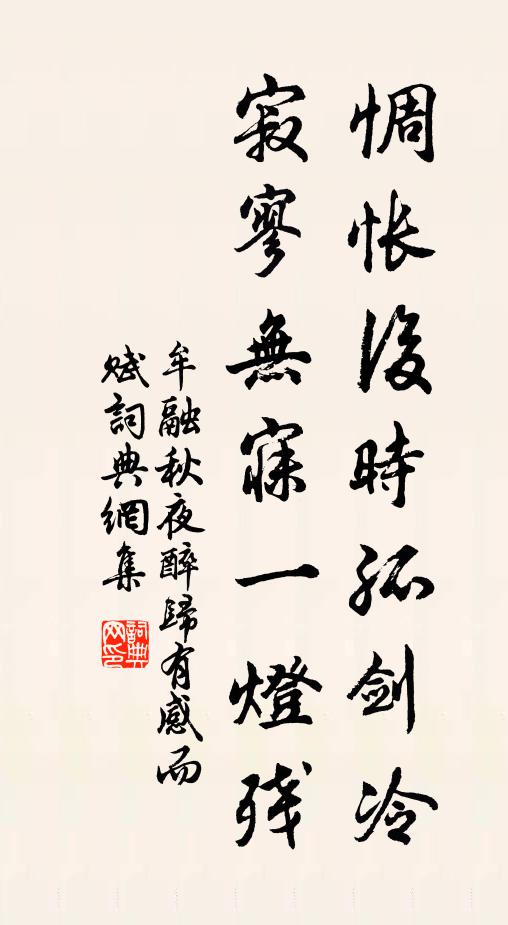 惆怅後時孤剑冷
寂寥無寐一燈残
牟融秋夜醉歸有感而
赋詞典網集
詞典
网印